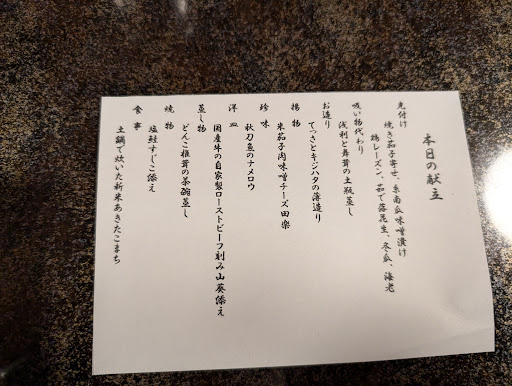 本日の献立
先付け
焼き茄子寄せ、糸南瓜味噌漬け
鴨レーズン、茹で落花生、冬瓜、海老
吸い物代わり
浅利と舞茸の土瓶蒸し
お造り
てっさとキジハタの薄造り
揚物
米茄子肉味噌チーズ田楽
珍味
秋刀魚のナメロウ
洋皿
国産牛の自家製ローストビーフ刻み山葵添え
蒸し物
どんこ椎茸の茶碗蒸し
焼物
塩鮭すじこ添え
食事
土鍋で炊いた新米あきたこまち